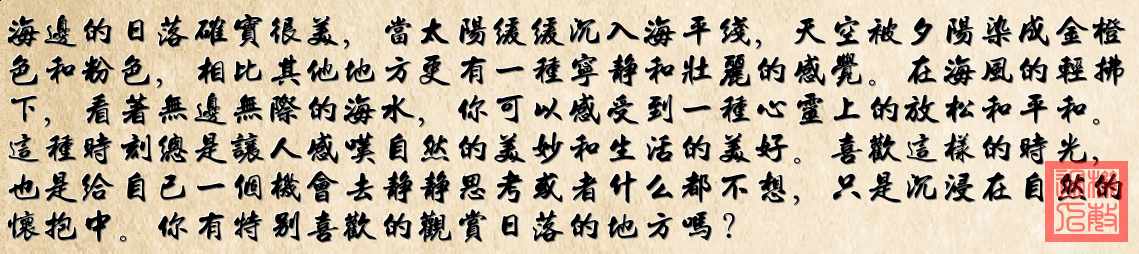 海邊的日落確實很美，當太陽緩緩沉入海平綫，天空被夕陽染成金橙
色和粉色，相比其他地方更有一種寧静和壯麗的感覺。在海風的輕拂
下，看著無邊無際的海水，你可以感受到一種心靈上的放松和平和。
這種時刻總是讓人感嘆自然的美妙和生活的美好。喜歡這樣的時光，
也是给自己一個機會去静静思考或者什么都不想，只是沉浸在自然的
懷抱中。你有特别喜歡的觀賞日落的地方嗎？